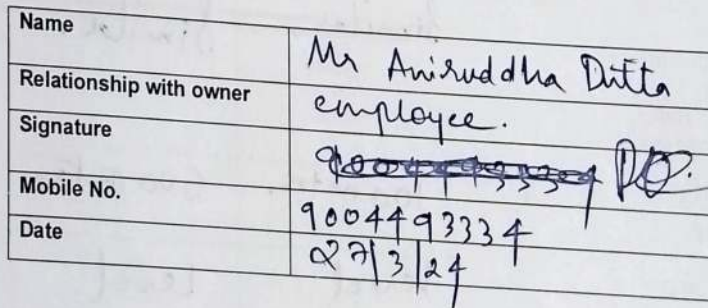 Name Mr Aniruddha Ditta
Relationship with owner employee.
Signature 9004493334
Mobile No. 9004493334
Date 27/3/24